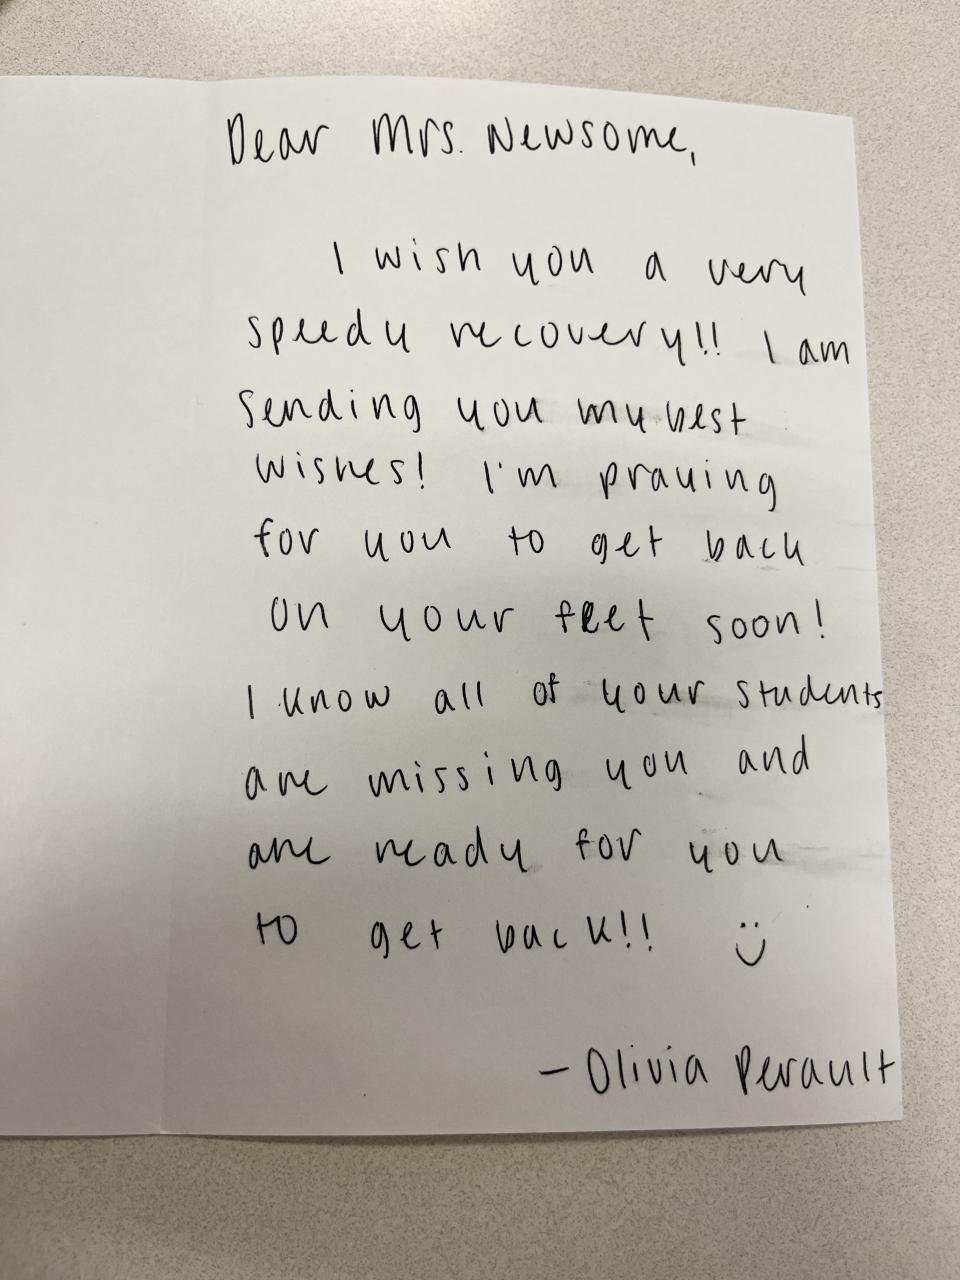 Dear Mrs. Newsome,
I wish you a very
speedy recovery!! I am
sending you my best
wishes! I'm praying
for you to get back
on your feet soon!
I know all of your students
are missing you and
are ready for you
to get back!! :)
- Olivia Perault